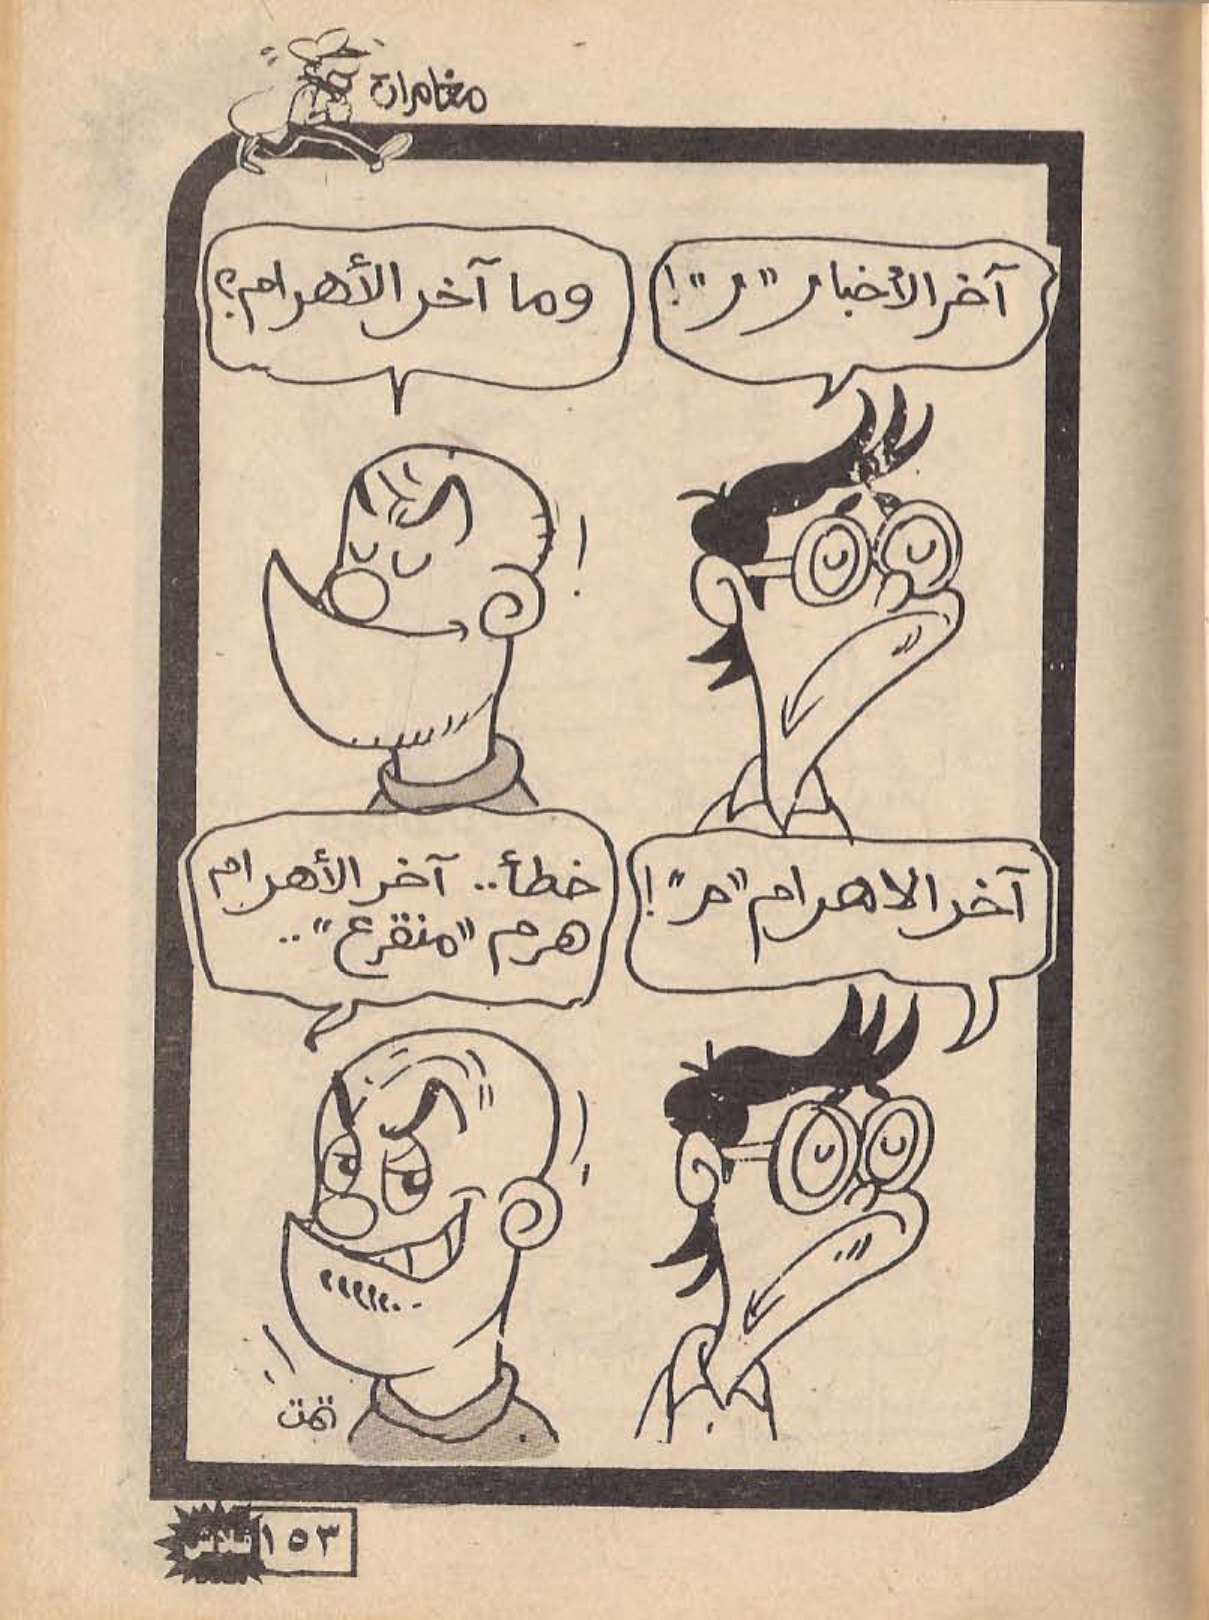 مغامرات
آخر الأخبار "ر"!
وما آخر الأهرام؟
آخر الاهرام "م"!
خطأ.. آخر الأهرام
هرم "منقرع"..
تمت
فلاش ١٥٣